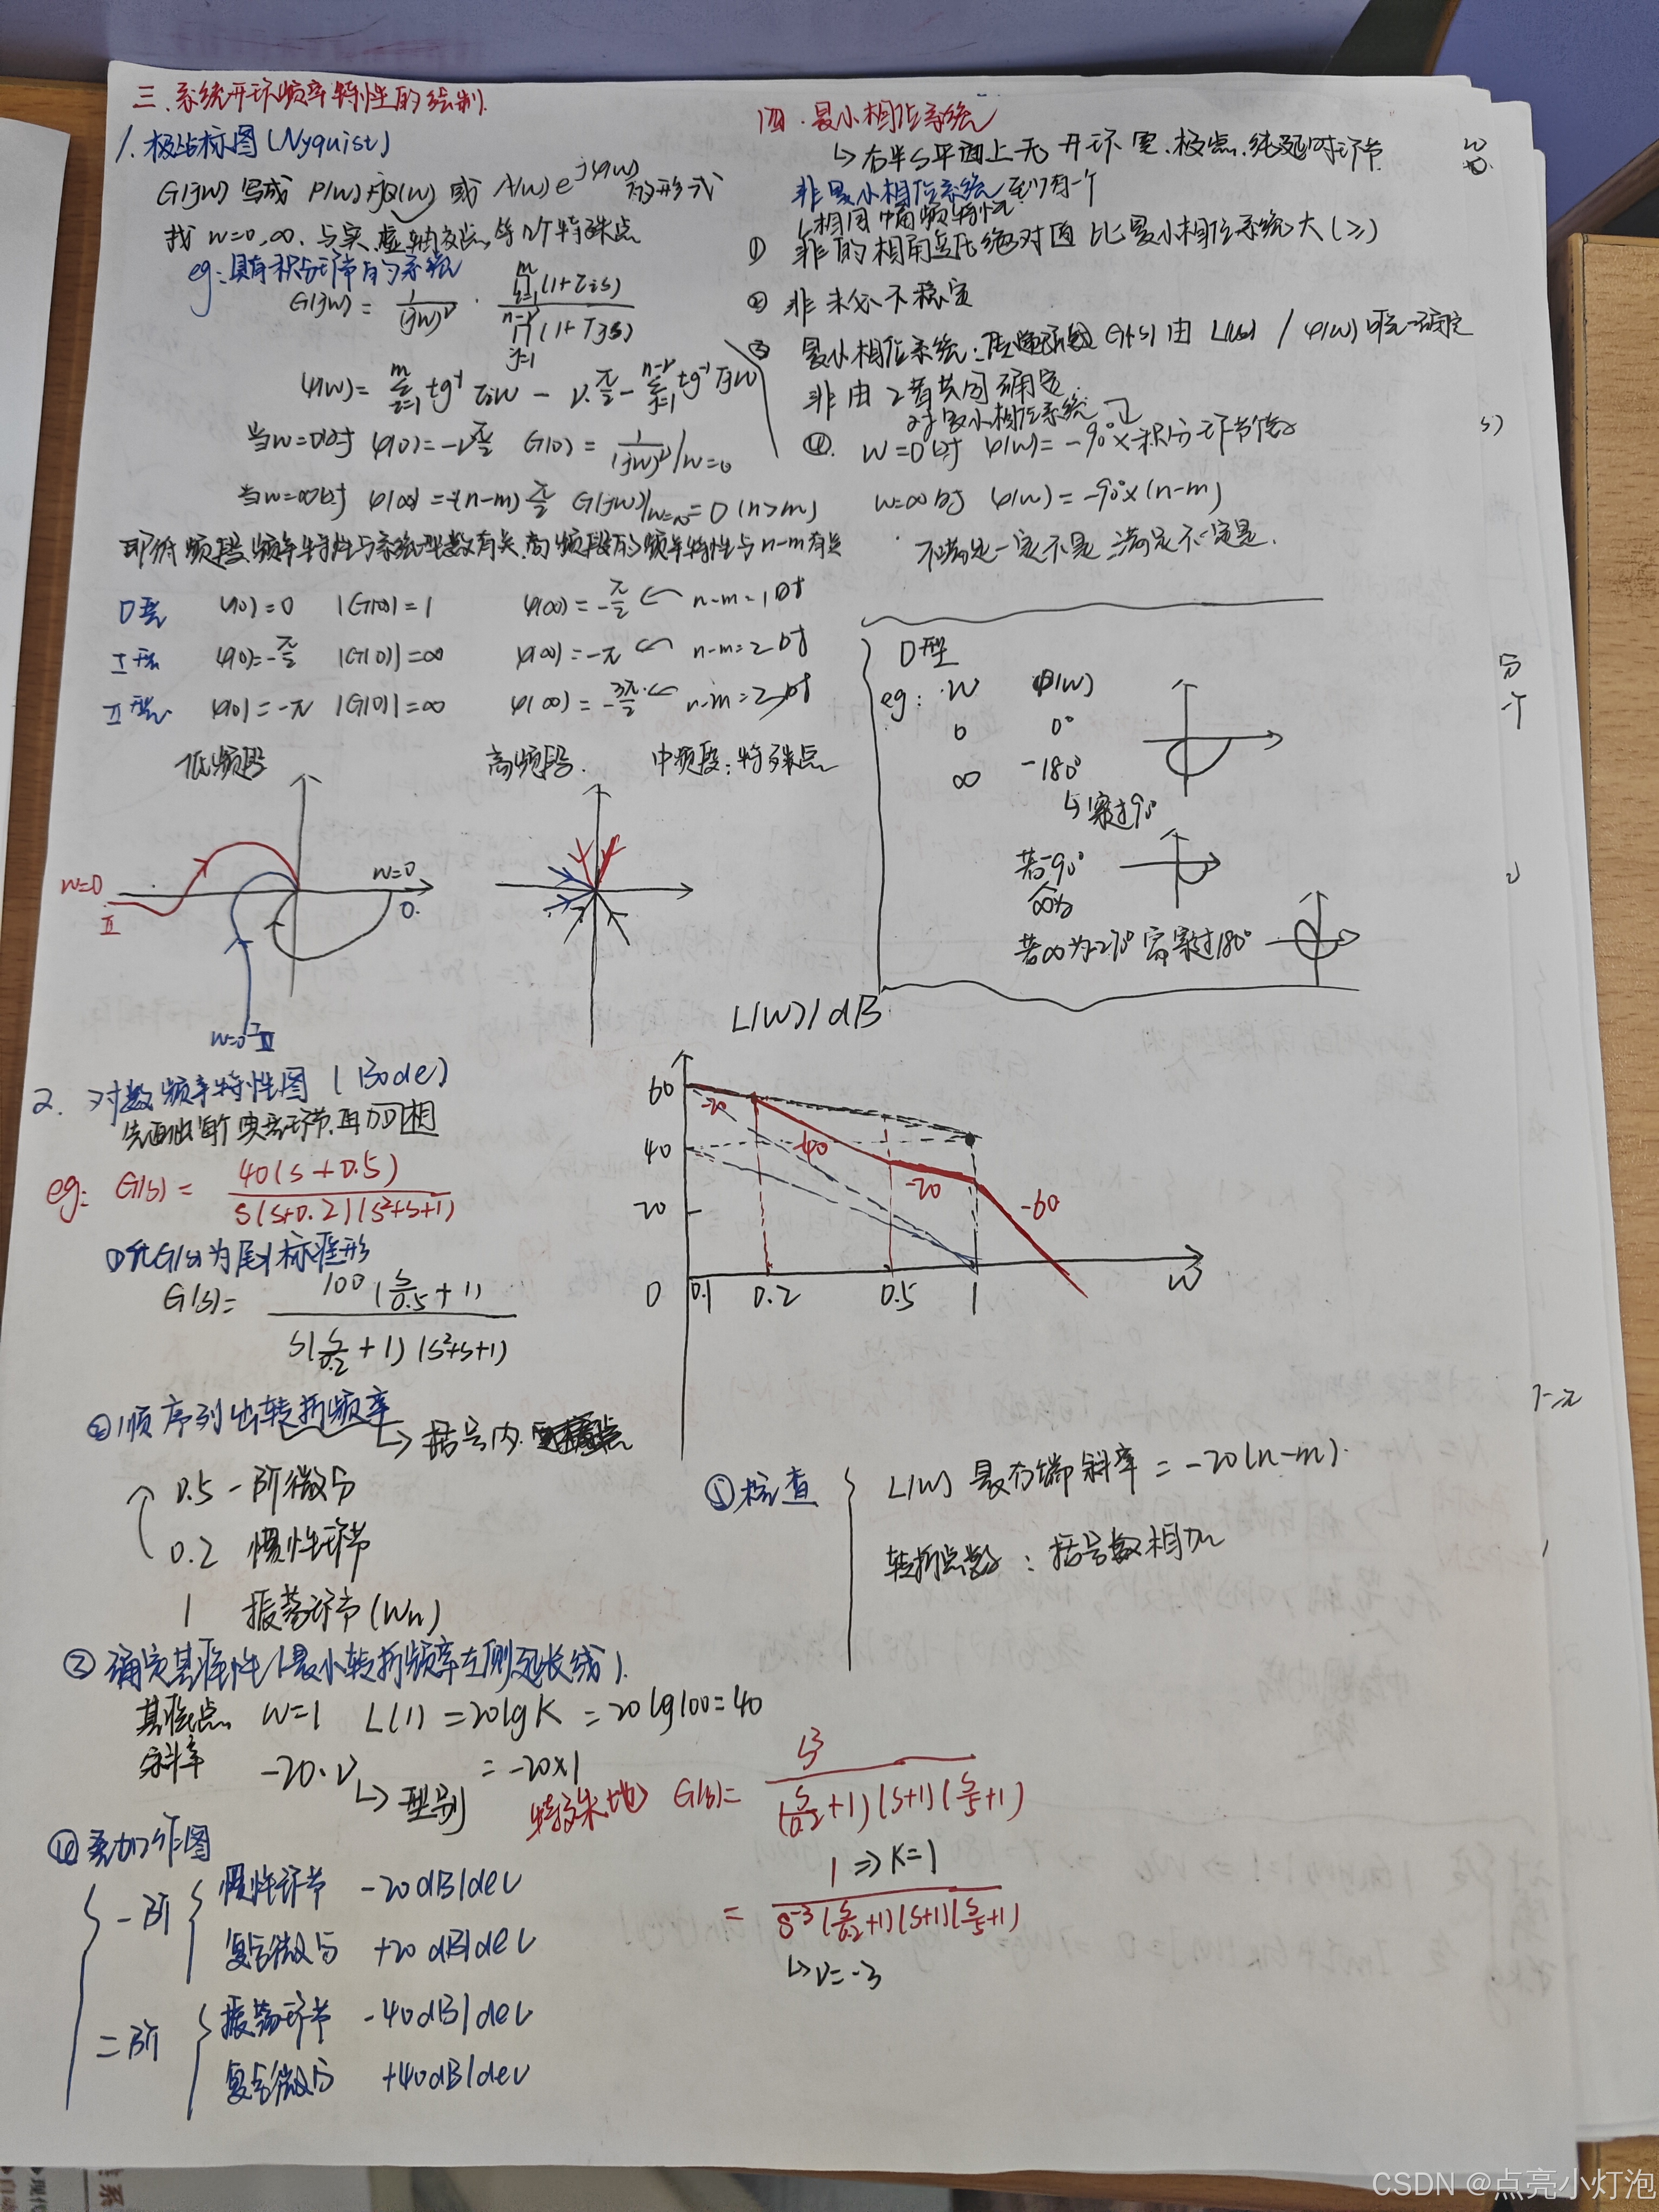 三.系统开环频率特性的绘制.
1.极坐标图(Nyquist)
G(jw)写成 P(w)+jQ(w) 或 A(w)e^{jφ(w)}的形式
找 w=0,∞,与实,虚轴交点,等几个特殊点
eg:具有积分环节的系统
G(jw)= 1/(jw)^ν · ∏_{i=1}^{m}(1+τis) / ∏_{j=1}^{n-ν}(1+Tjs)
φ(w)= Σ_{i=1}^{m} tg⁻¹τiw − ν·π/2 − Σ_{j=1}^{n-ν} tg⁻¹Tjw
当w=0时 φ(0)=-νπ/2 G(0)= 1/(jw)^ν|w=0
当w=∞时 φ(∞)=-(n-m)π/2 G(jw)|w=∞=0 (n>m)
即低频段频率特性与系统型数有关,高频段的频率特性与n-m有关
0型 φ(0)=0 |G(0)|=1 φ(∞)=-π/2 ← n-m=1时
I型 φ(0)=-π/2 |G(0)|=∞ φ(∞)=-π ← n-m=2时
II型 φ(0)=-π |G(0)|=∞ φ(∞)=-3π/2 ← n-m=2时
低频段 高频段. 中频段:特殊点
w=0
II
w=0
0.
w=0
2. 对数频率特性图 (Bode)
先画出每个典型环节,再加相
eg: G(s)= 40(s+0.5) / s(s+0.2)(s²+s+1)
①化G(s)为尾1标准形
G(s)= 100(s/0.5+1) / s(s/0.2+1)(s²+s+1)
②顺序列出转折频率
↳括号内
0.5 一阶微分
0.2 惯性环节
1 振荡环节(wn)
③确定基准线(最小转折频率左侧延长线).
基准点 w=1 L(1)=20lgK=20lg100=40
斜率 -20·ν =-20×1
↳型别
④叠加作图
一阶 惯性环节 -20dB/dec
复合微分 +20dB/dec
二阶 振荡环节 -40dB/dec
复合微分 +40dB/dec
四.最小相位系统
↳右半s平面上无开环零.极点.纯延时环节
非最小相位系统至少有一个
相同幅频特性
① 非的相角变化绝对值比最小相位系统大(≥)
② 非未必不稳定
③ 最小相位系统:传递函数G(s)由L(w)/φ(w)唯一确定
非由2者共同确定
对最小相位系统
④. w=0时 φ(w)=-90°×积分环节
w=∞时 φ(w)=-90°×(n-m)
不满足一定不是,满足不一定是.
0型
eg: w φ(w)
0 0°
∞ -180°
↳穿过90°
若-90°
∞为
若∞为-270°需穿过180°
L(w)/dB
60
40
20
0 0.1 0.2 0.5 1 w
-20
-40
-20
-60
⑤检查 L(w)最右端斜率=-20(n-m).
转折点数:括号数相加
特殊地 G(s)= s³ / (s/0.2+1)(s+1)(s/5+1)
= 1⇒K=1 / s⁻³(s/0.2+1)(s+1)(s/5+1)
↳ν=-3
CSDN @点亮小灯泡